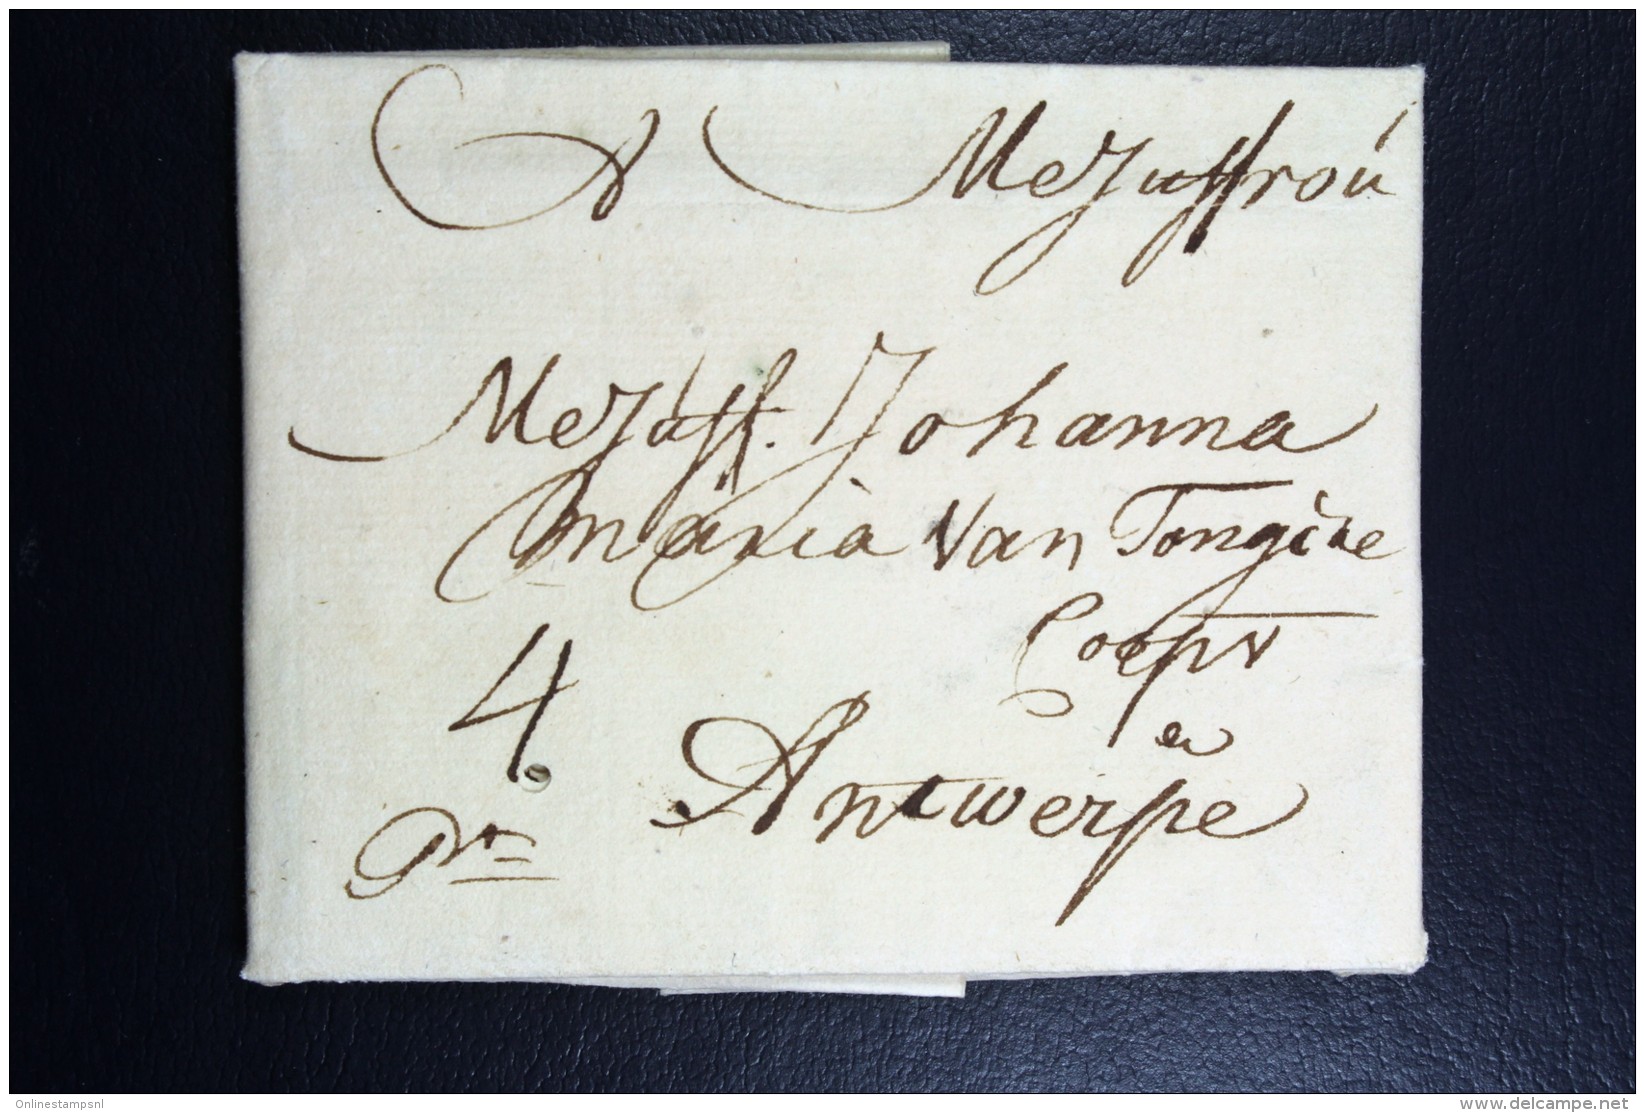 A Mejuffrou
Mejuff. Johanna
Maria Van Tongire
Coopv
en
4.
Antwerpe
Onlinestampsnl
www.delcampe.net